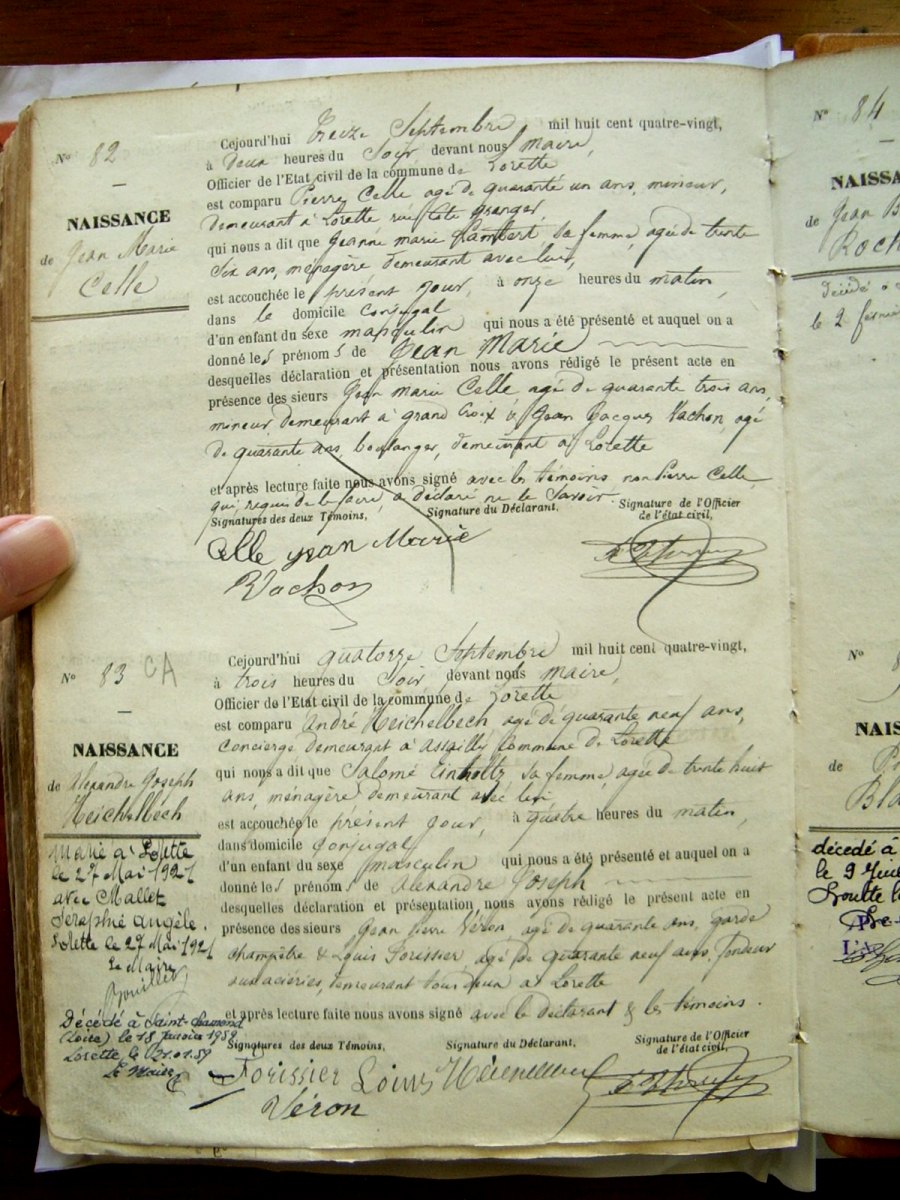 N° 82
NAISSANCE
de Jean Marie
Celle
Cejourd'hui treize Septembre mil huit cent quatre-vingt,
à Deux heures du Soir, devant nous Maire,
Officier de l'Etat civil de la commune de Lorette
est comparu Pierre Celle agé de quarante un ans, mineur,
demeurant à Lorette rue Côte granger,
qui nous a dit que Jeanne marie Lambert, Sa femme, agée de trente
Six ans, ménagère demeurant avec lui,
est accouchée le présent jour, à onze heures du matin,
dans le domicile conjugal
d'un enfant du sexe masculin qui nous a été présenté et auquel on a
donné les prénoms de Jean Marie
desquelles déclaration et présentation nous avons rédigé le présent acte en
présence des sieurs Jean marie Celle agé de quarante trois ans,
mineur demeurant à grand Croix & Jean Jacques Vachon, agé
de quarante ans, boulanger, demeurant à Lorette
et après lecture faite nous avons signé avec les témoins non Pierre Celle
qui, requis de le faire, a déclaré ne le Savoir.
Signatures des deux Témoins, Signature du Déclarant, Signature de l'Officier
de l'état civil,
Celle jean Marie
Vachon
N° 83 CA
NAISSANCE
de Alexandre Joseph
Heichelbech
Marié à Lorette
le 27 Mai 1921
avec Mallet
Séraphie Angèle.
Lorette le 27 Mai 1921
Le Maire
Décédé à Saint-Chamond
(Loire) le 18 Janvier 1959
Lorette, le 21.01.59
Le Maire
Cejourd'hui quatorze Septembre mil huit cent quatre-vingt,
à trois heures du Soir devant nous Maire,
Officier de l'Etat civil de la commune de Lorette
est comparu André Heichelbech agé de quarante neuf ans,
Concierge demeurant à Assailly Commune de Lorette
qui nous a dit que Salomé Einholtz Sa femme, agée de trente huit
ans, ménagère demeurant avec lui
est accouchée le présent jour, à quatre heures du matin,
dans domicile conjugal
d'un enfant du sexe masculin qui nous a été présenté et auquel on a
donné les prénoms de Alexandre Joseph
desquelles déclaration et présentation nous avons rédigé le présent acte en
présence des sieurs Jean Pierre Véron agé de quarante ans, garde
champêtre & Louis Forissier agé de quarante neuf ans, fondeur
aux aciéries, demeurant tous deux à Lorette
et après lecture faite nous avons signé avec le déclarant & les témoins.
Signatures des deux Témoins, Signature du Déclarant, Signature de l'Officier
de l'état civil,
Forissier Louis
Véron
N° 84
NAISSA
de Jean B
Roch
Décédé
le 2 février
N°
NAIS
de
Bla
décédé à
le 9 Juil